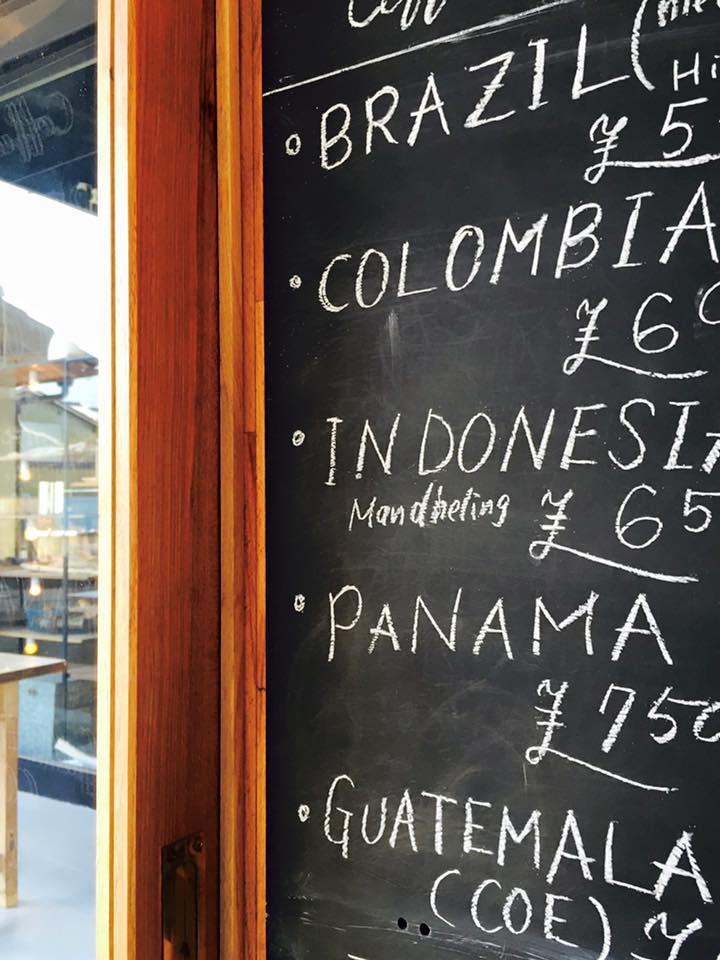 Coff
• BRAZIL (
Hi
¥ 5
• COLOMBIA
¥ 60
• INDONESIA
Mandheling ¥ 65
• PANAMA
¥ 750
• GUATEMALA
(COE) ¥